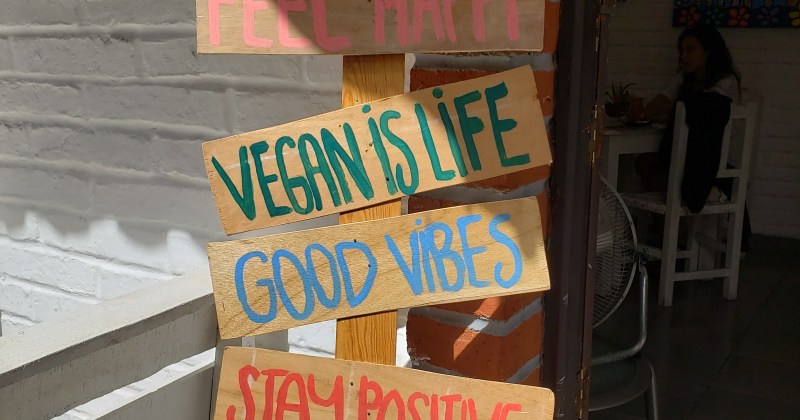 FEEL HAPPY
VEGAN iS LiFE
GOOD ViBES
STAY POSITIVE